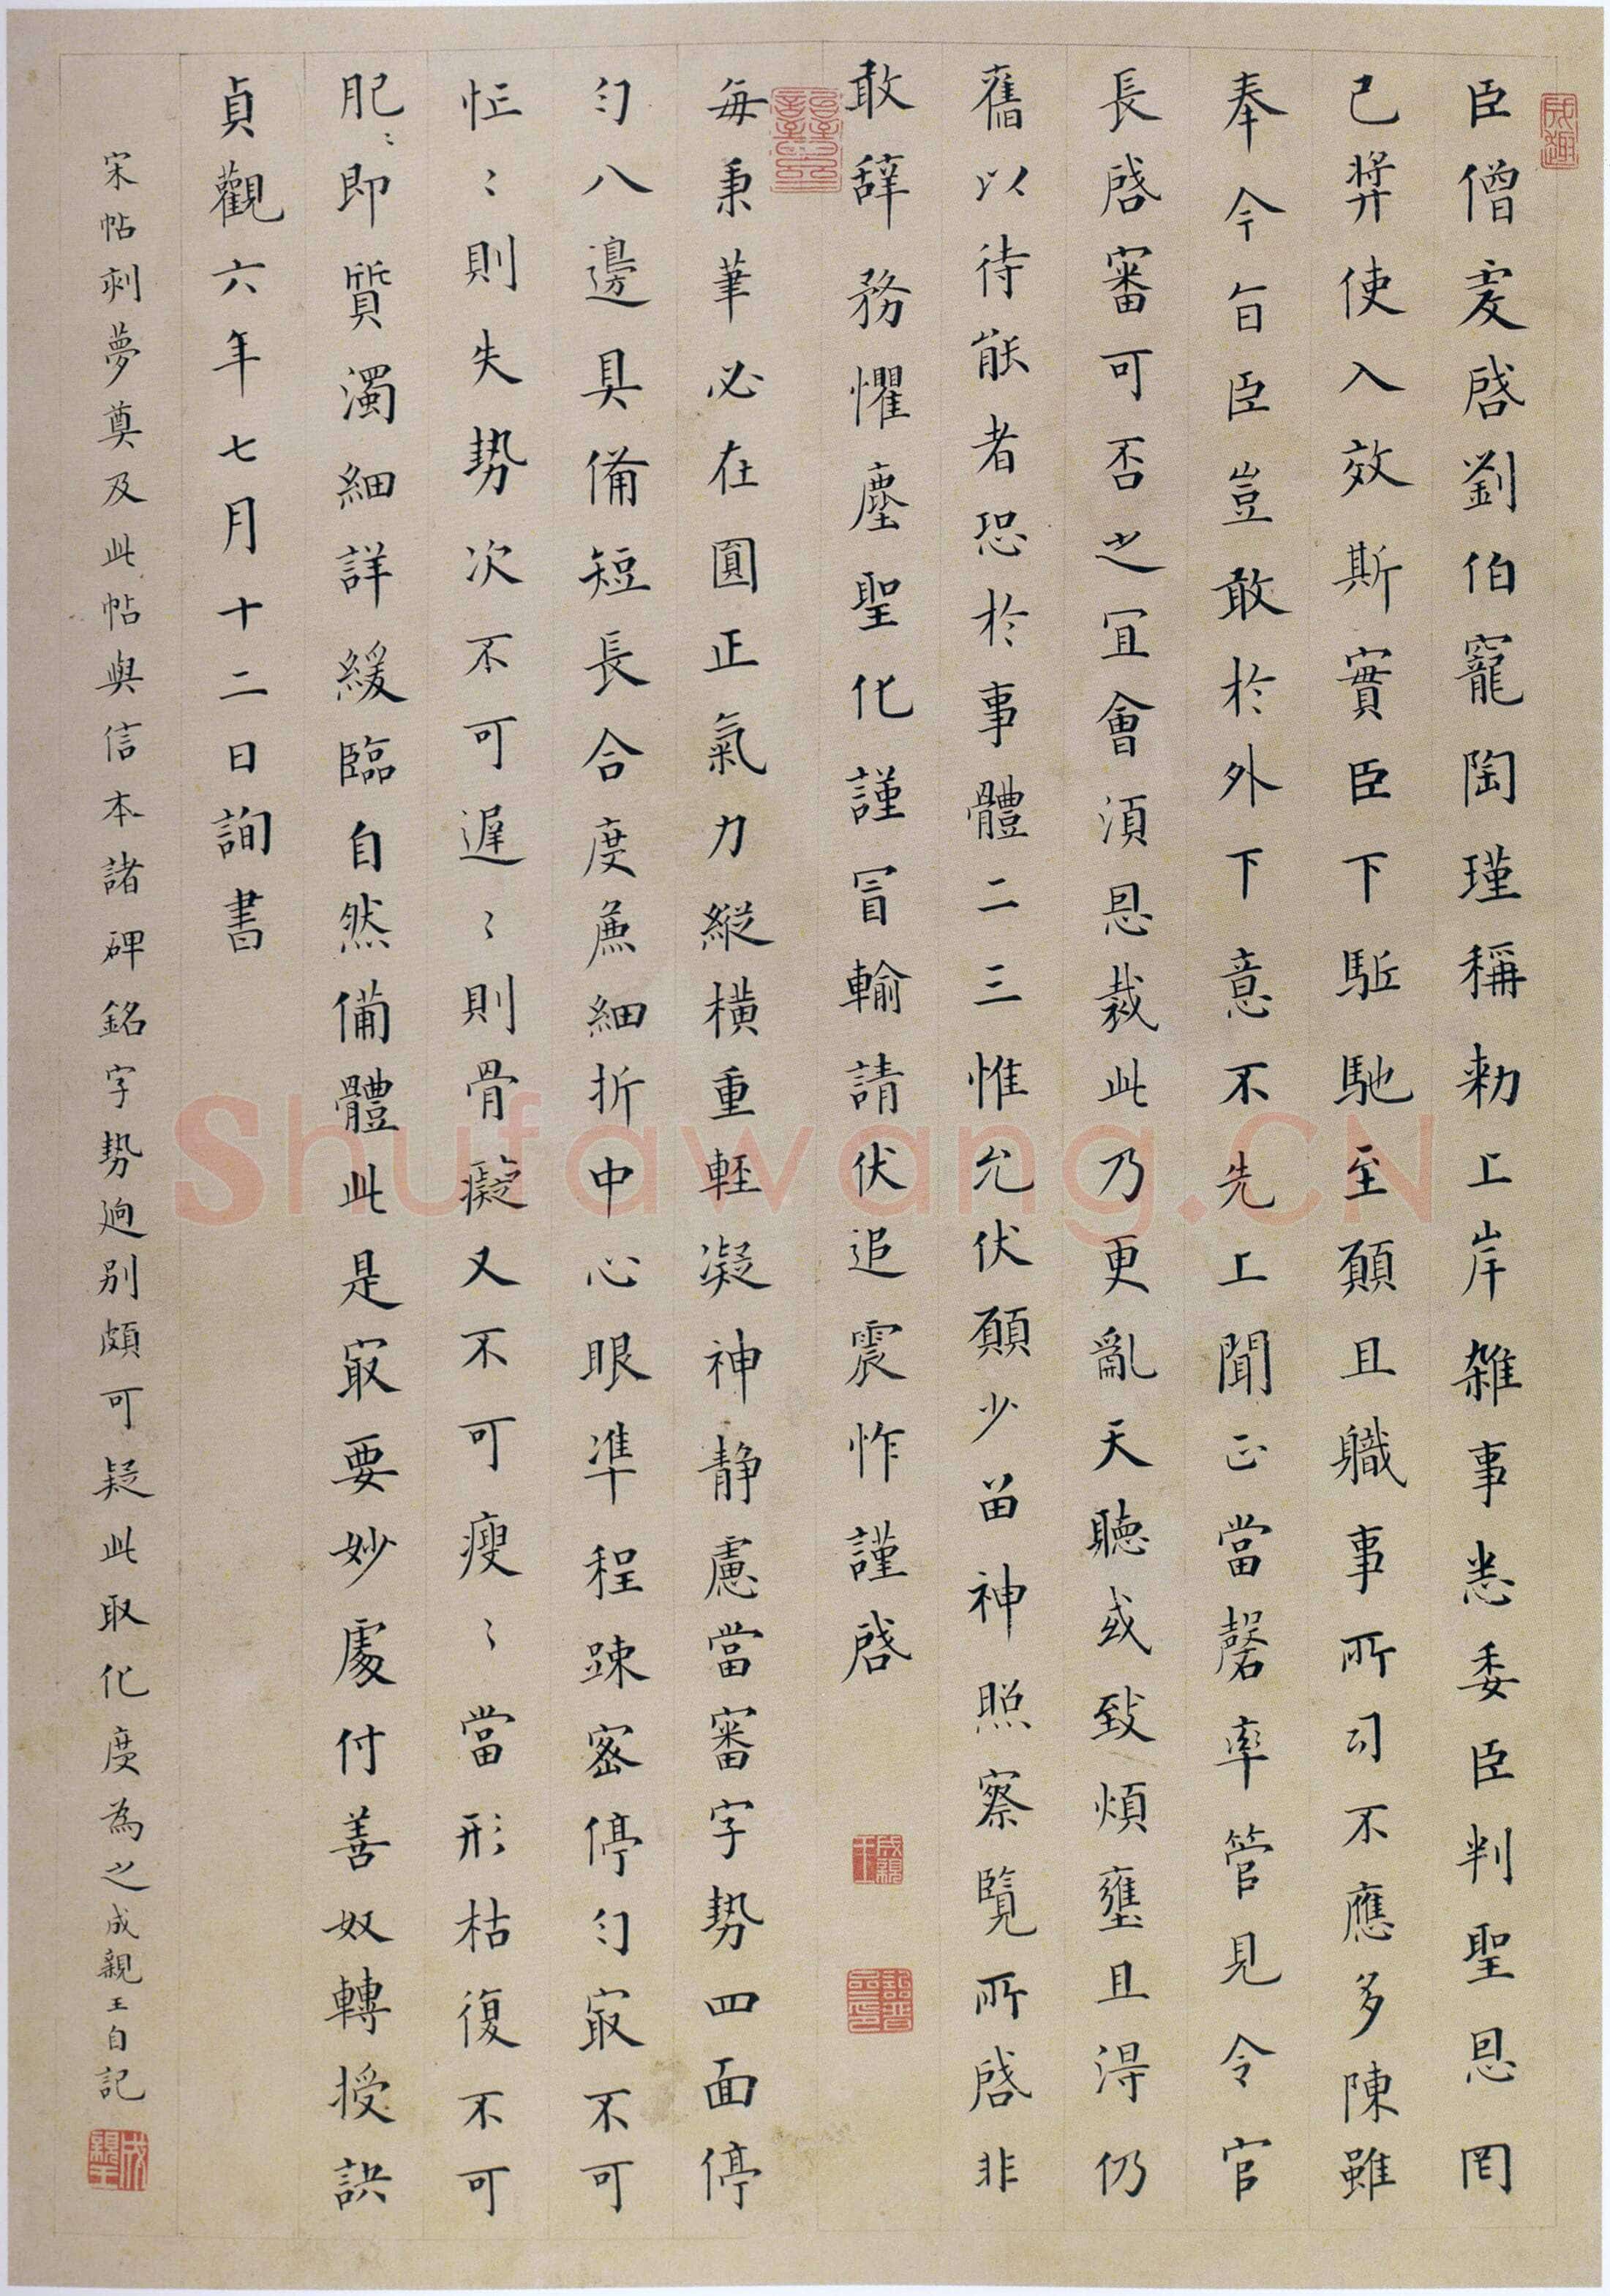 臣僧虔啓劉伯寵陶瑾稱勑上岸雜事悉委臣判聖恩罔
已獎使入效斯實臣下駈馳至願且職事所司不應多陳雖
奉今旨臣豈敢於外下意不先上聞正當罄率管見令官
長啓審可否之宜會湏恩裁此乃更亂天聽或致煩壅且淂仍
舊以待能者恐於事體二三惟允伏願少留神照察覽所啓非
敢辞務懼塵聖化謹冒輸請伏追震怍謹啓
每秉筆必在圓正氣力縱橫重輕凝神静慮當審字勢四面停
勻八邊具備短長合度麁細折中心眼準程踈密停勻寂不可
忙〻則失勢次不可遲〻則骨癡又不可瘦〻當形枯復不可
肥〻即質濁細詳緩臨自然備體此是最要妙處付善奴轉授訣
貞觀六年七月十二日詢書
宋帖刻夢奠及此帖與信本諸碑銘字勢逈别頗可疑此取化度為之成親王自記
Shufawang.CN